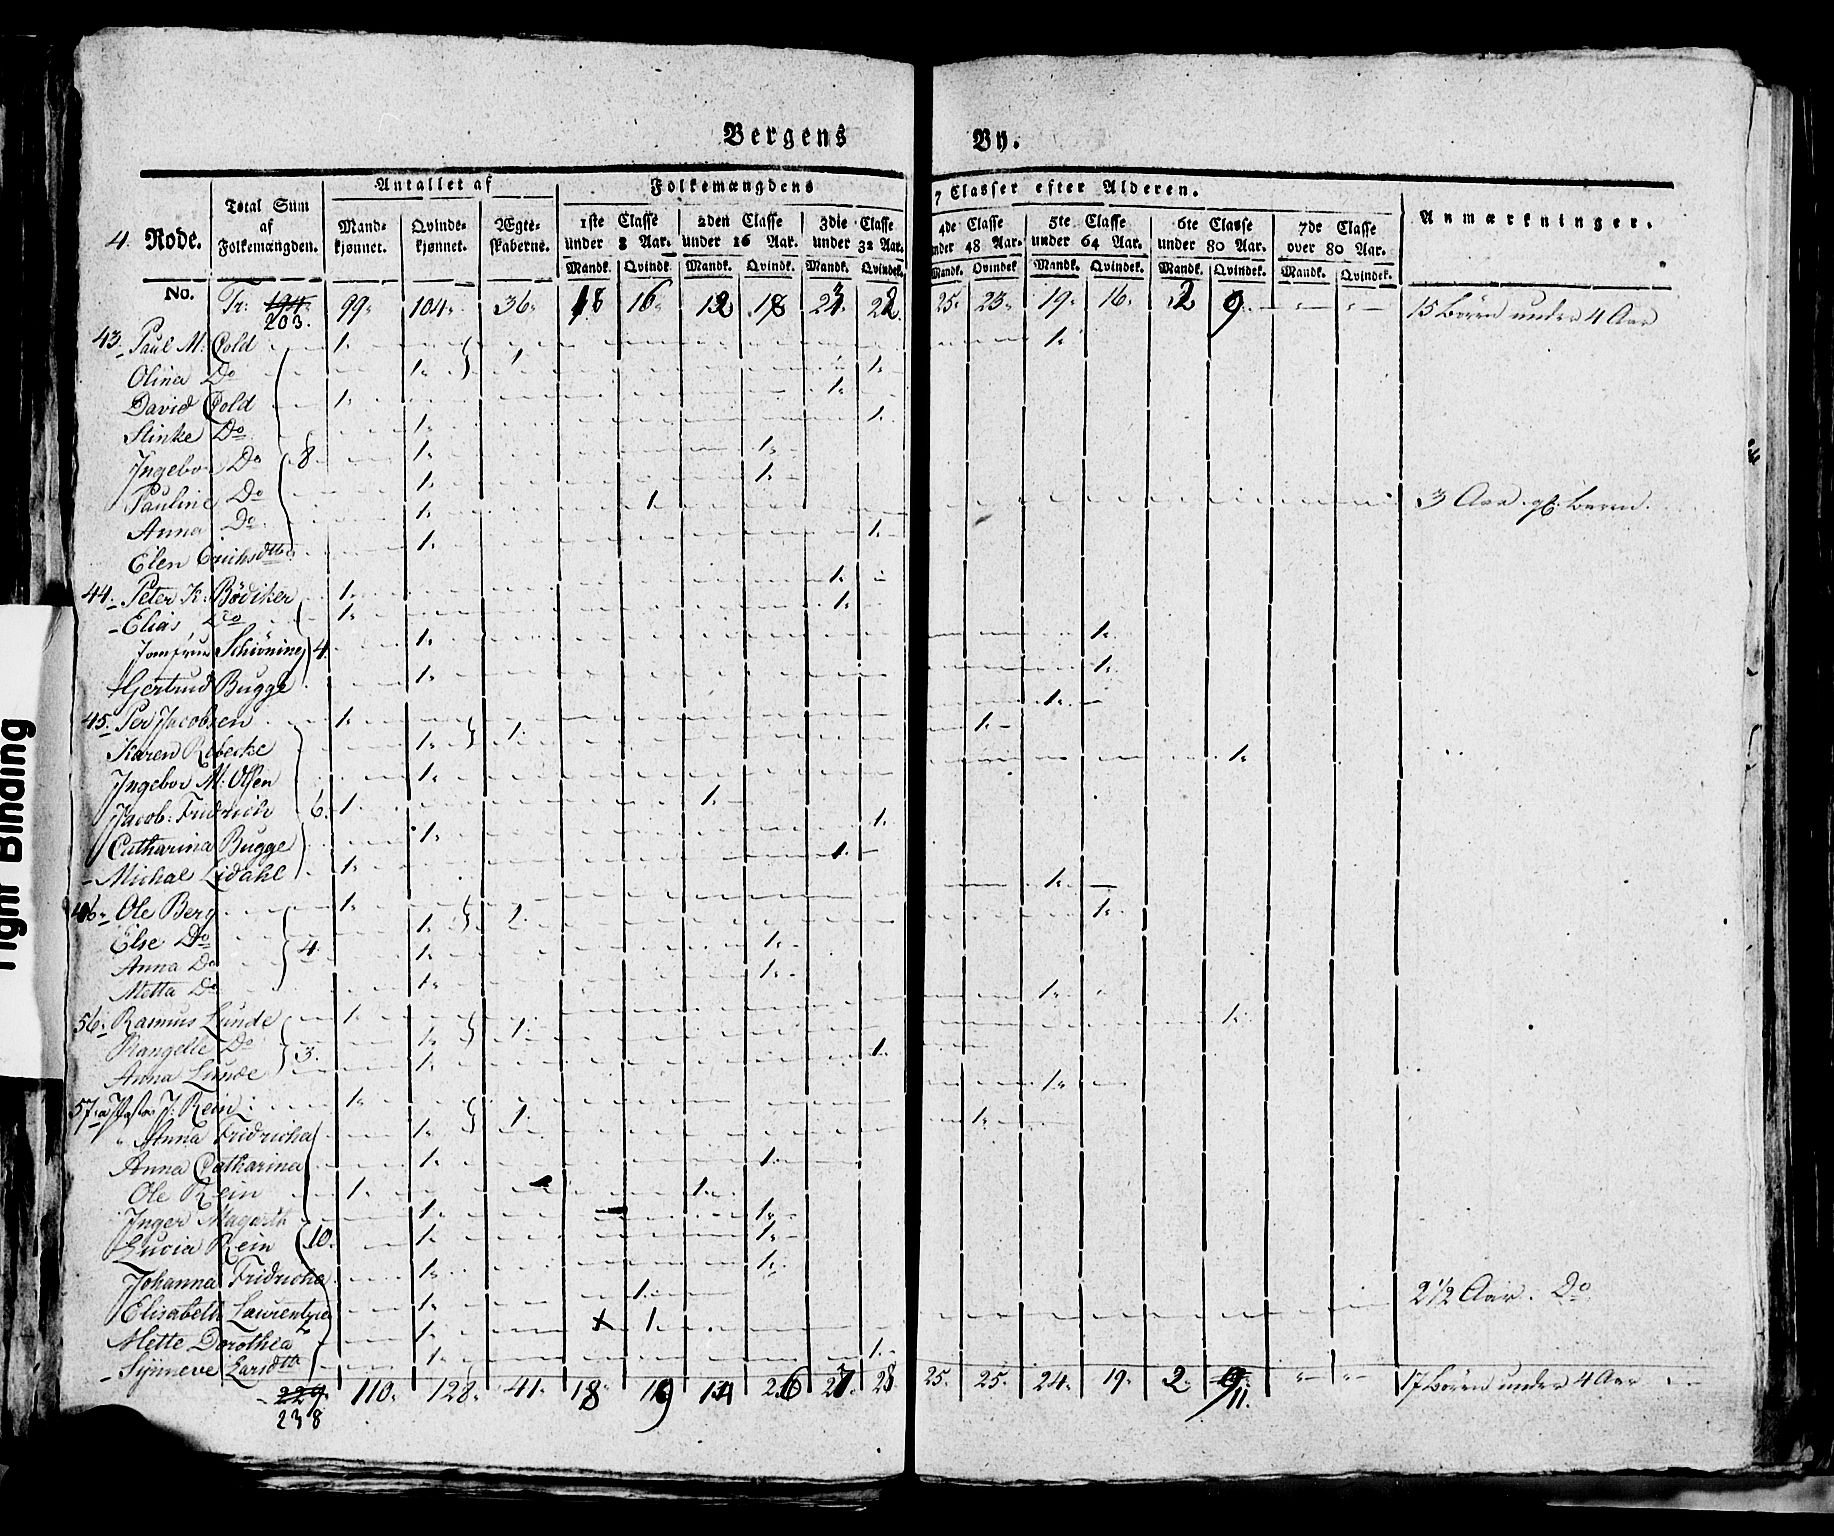 Bergens By.
Antallet af Folkemængdens 7 Classer efter Alderen.
4. Rode. Total Sum af Folkemængden. Mandkjønnet. Qvindekjønnet. Ægteskaberne. 1ste Classe under 8 Aar. 2den Classe under 16 Aar. 3die Classe under 32 Aar. 4de Classe under 48 Aar. 5te Classe under 64 Aar. 6te Classe under 80 Aar. 7de Classe over 80 Aar. Anmærkninger.
Mandk. Qvindk. Mandk. Qvindk. Mandk. Qvindek. Mandk. Qvindek. Mandk. Qvindek. Mandk. Qvindek. Mandk. Qvindek.
No. Tr: 194 203. 99 104 36 18 16 12 18 22 25 23 19 16 2 9 15 Børn under 4 Aar
43. Paul M: Cold 1 1
Olina Do 1 1 1
David Cold 1 1
Stinke Do 1 1
Ingebor Do 8 1 1
Pauline Do 1 1
Anna Do 1 1 3 Aar
Elen Erichsdtte 1 1
44. Peter K: Bødiker 1 1
Elias Do 1 1
Jomfrue Schiøning 4. 1 1
Gertrud Bugge 1 1
45. Per Jacobsen 1 1
Karen Rebecke 1 1 1
Ingebor M: Olsen 1 1
Jacob: Fridrich 6. 1 1
Catharina Bugge 1 1
Michal Lidahl 1 1
46. Ole Berg 1 1
Else Do 1 1 1
Anna Do 4. 1 1
Metta Do 1 1
56. Rasmus Lunde 1 1
Rangelle Do 1 1 1
Anna Lunde 3. 1 1
57. a J: Rein 1 1
Anna Fridricha 1 1 1
Anna Catharina 1 1
Ole Rein 1 1
Inger Magarth 1 1
Lucia Rein 10. 1 1
Johanna Fridricha 1 1
Elisabeth Laurentze 1 1
Mette Dorothea 1 1 2 1/2 Aar. Do
Synneve Larsdtt 1 1
229 238 110 128 41 18 19 14 26 27 28 25 25 24 19 2 11. 17 Børn under 4 Aar
Tight Binding